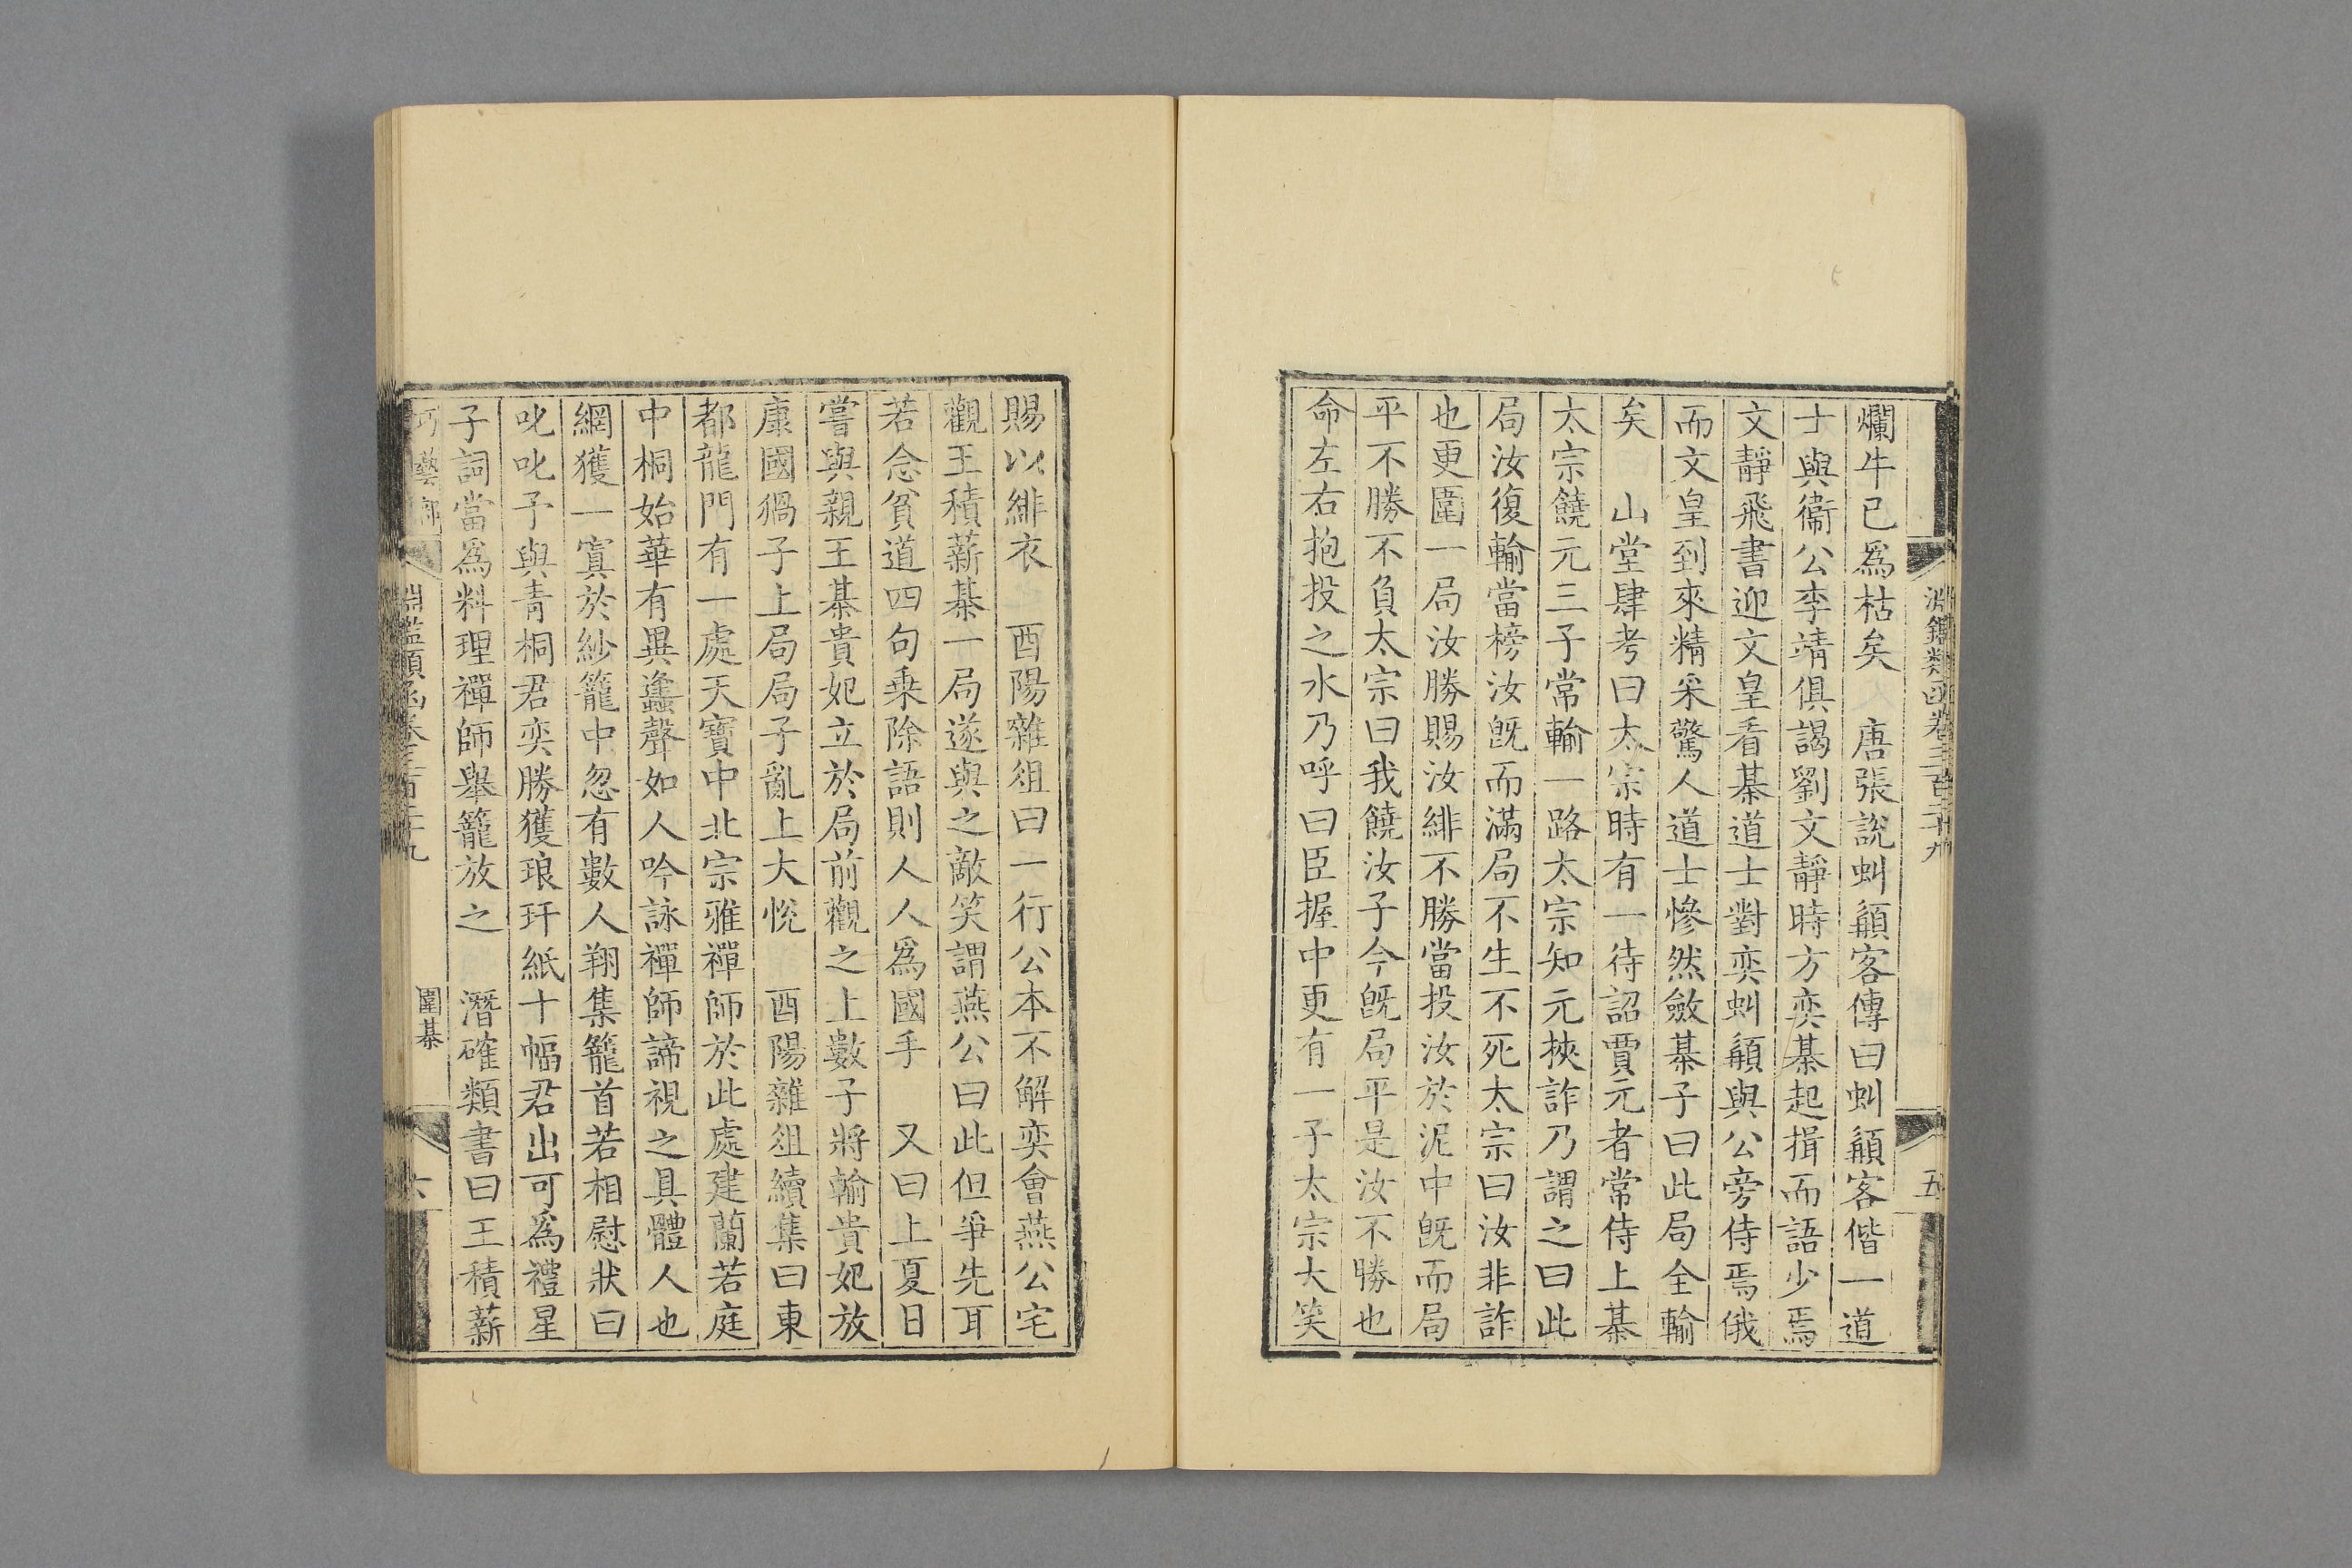 淵鑑類函卷三百二十九
五
爛牛已爲枯矣 唐張說虯顛客傳曰虯顛客偕一道
士與衞公李靖俱謁劉文靜時方奕棊起揖而語少焉
文靜飛書迎文皇看棊道士對奕虯顛與公旁侍焉俄
而文皇到來精采驚人道士慘然斂棊子曰此局全輸
矣 山堂肆考曰太宗時有一待詔賈元者常侍上棊
太宗饒元三子常輸一路太宗知元挾詐乃謂之曰此
局汝復輸當榜汝旣而滿局不生不死太宗曰汝非詐
也更圍一局汝勝賜汝緋不勝當投汝於泥中旣而局
平不勝不負太宗曰我饒汝子今旣局平是汝不勝也
命左右抱投之水乃呼曰臣握中更有一子太宗大笑
賜以緋衣 酉陽雜俎曰一行公本不解奕會燕公宅
觀王積薪棊一局遂與之敵笑謂燕公曰此但爭先耳
若念貧道四句乗除語則人人爲國手 又曰上夏日
嘗與親王棊貴妃立於局前觀之上數子將輸貴妃放
康國猧子上局局子亂上大悅 酉陽雜俎續集曰東
都龍門有一處天寶中北宗雅禪師於此處建蘭若庭
中桐始華有異蠭聲如人吟詠禪師諦視之具體人也
網獲一寘於紗籠中忽有數人翔集籠首若相慰狀曰
叱叱子與青桐君奕勝獲琅玕紙十幅君出可爲禮星
子詞當爲料理禪師舉籠放之 潛確類書曰王積薪
巧藝部
淵鑑類函卷三百二十九
圍棊
六